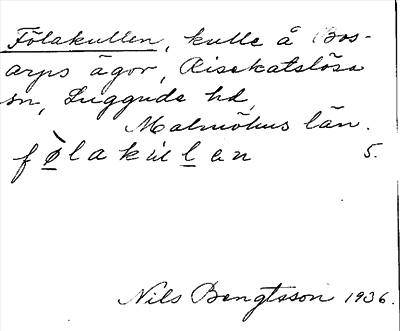 Fölakullen, kulle å Bos-
arps ägor, Risekatslösa
sn, Luggude hd,
Malmöhus län.
fø̀lakul̲l̲an 5.
Nils Bengtsson 1936.